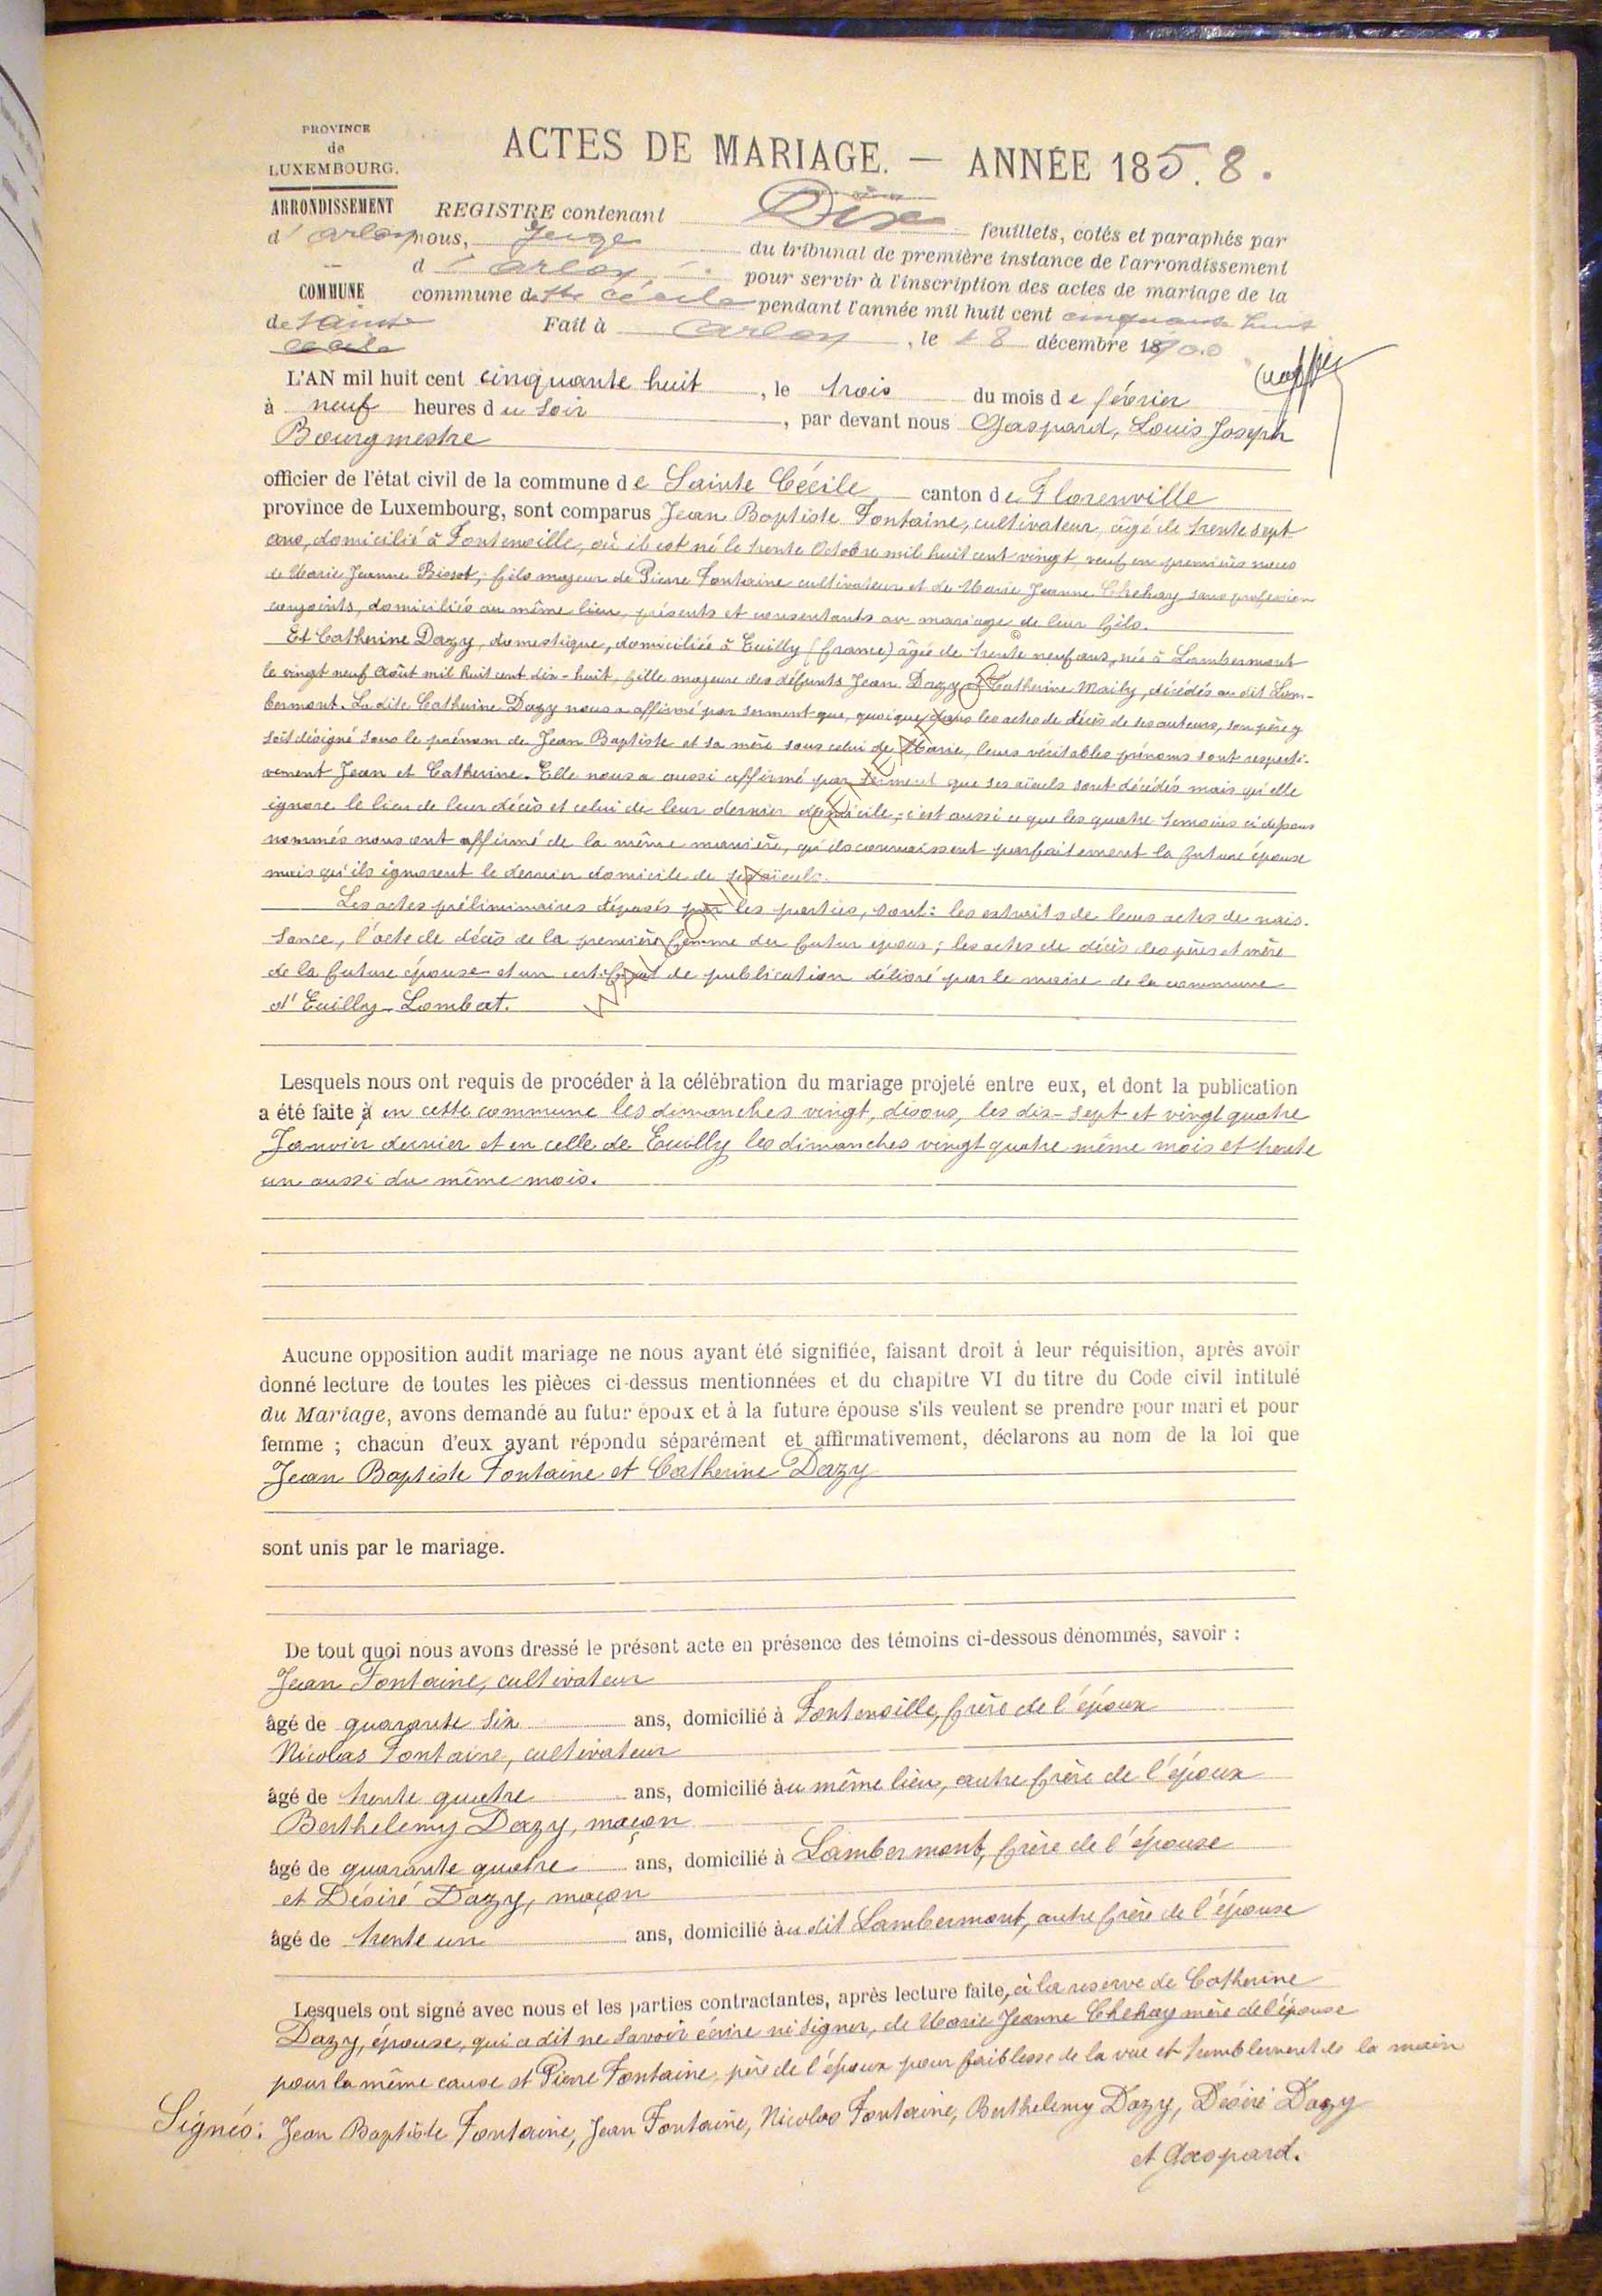 PROVINCE
de
LUXEMBOURG.
ARRONDISSEMENT
d'Arlon
COMMUNE
de Sainte
Cécile
ACTES DE MARIAGE. — ANNÉE 185.8.
REGISTRE contenant Dix feuillets, cotés et paraphés par
nous, Juge du tribunal de première instance de l'arrondissement
d'Arlon, pour servir à l'inscription des actes de mariage de la
commune de Ste Cécile pendant l'année mil huit cent cinquante huit
Fait à Arlon, le 18 décembre 1900
L'AN mil huit cent cinquante huit, le trois du mois de février
à neuf heures du soir, par devant nous Gaspard, Louis Joseph
Bourgmestre
officier de l'état civil de la commune de Sainte Cécile, canton de Florenville
province de Luxembourg, sont comparus Jean Baptiste Fontaine, cultivateur, âgé de trente sept
ans, domicilié à Fontenoille, où il est né le trente Octobre mil huit cent vingt, veuf en premières noces
de Marie Jeanne Bissot, fils majeur de Pierre Fontaine cultivateur et de Marie Jeanne Chehay sans profession
conjoints, domiciliés au même lieu, présents et consentants au mariage de leur fils.
Et Catherine Dazy, domestique, domiciliée à Euilly (france) âgée de trente neuf ans, née à Lambermont
le vingt neuf Août mil huit cent dix-huit, fille majeure des défunts Jean Dazy et Catherine Maily, décédés au dit Lam-
bermont. La dite Catherine Dazy nous a affirmé par serment que, quoique dans les actes de décès de ses auteurs, son père y
soit désigné sous le prénom de Jean Baptiste et sa mère sous celui de Marie, leurs véritables prénoms sont respecti-
vement Jean et Catherine. Elle nous a aussi affirmé par serment que ses aïeuls sont décédés mais qu'elle
ignore le lieu de leur décès et celui de leur dernier domicile; c'est aussi ce que les quatre temoins ci dessous
nommés nous ont affirmé de la même manière, qu'ils connaissent parfaitement la future épouse
mais qu'ils ignorent le dernier domicile de ses aïeuls.
Les actes préliminaires déposés par les parties, sont: les extraits de leurs actes de nais-
sance, l'acte de décès de la première femme du futur époux; les actes de décès des pères et mère
de la future épouse et un certificat de publication délivré par le maire de la commune
d'Euilly-Lombat.
Lesquels nous ont requis de procéder à la célébration du mariage projeté entre eux, et dont la publication
a été faite à en cette commune les dimanches vingt, disons, les dix-sept et vingt quatre
Janvier dernier et en celle de Euilly les dimanches vingt quatre même mois et trente
un aussi du même mois.
Aucune opposition audit mariage ne nous ayant été signifiée, faisant droit à leur réquisition, après avoir
donné lecture de toutes les pièces ci-dessus mentionnées et du chapitre VI du titre du Code civil intitulé
du Mariage, avons demandé au futur époux et à la future épouse s'ils veulent se prendre pour mari et pour
femme ; chacun d'eux ayant répondu séparément et affirmativement, déclarons au nom de la loi que
Jean Baptiste Fontaine et Catherine Dazy
sont unis par le mariage.
De tout quoi nous avons dressé le présent acte en présence des témoins ci-dessous dénommés, savoir :
Jean Fontaine, cultivateur
âgé de quarante six ans, domicilié à Fontenoille, frère de l'époux
Nicolas Fontaine, cultivateur
âgé de trente quatre ans, domicilié au même lieu, autre frère de l'époux
Berthelemy Dazy, maçon
âgé de quarante quatre ans, domicilié à Lambermont, frère de l'épouse
et Désiré Dazy, maçon
âgé de trente un ans, domicilié au dit Lambermont, autre frère de l'épouse
Lesquels ont signé avec nous et les parties contractantes, après lecture faite, à la reserve de Catherine
Dazy, épouse, qui a dit ne savoir écrire ni signer, de Marie Jeanne Chehay mère de l'épouse
pour la même cause et Pierre Fontaine, père de l'époux pour faiblesse de la vue et tremblement de la main
Signés: Jean Baptiste Fontaine, Jean Fontaine, Nicolas Fontaine, Berthelemy Dazy, Désiré Dazy
et Gaspard.